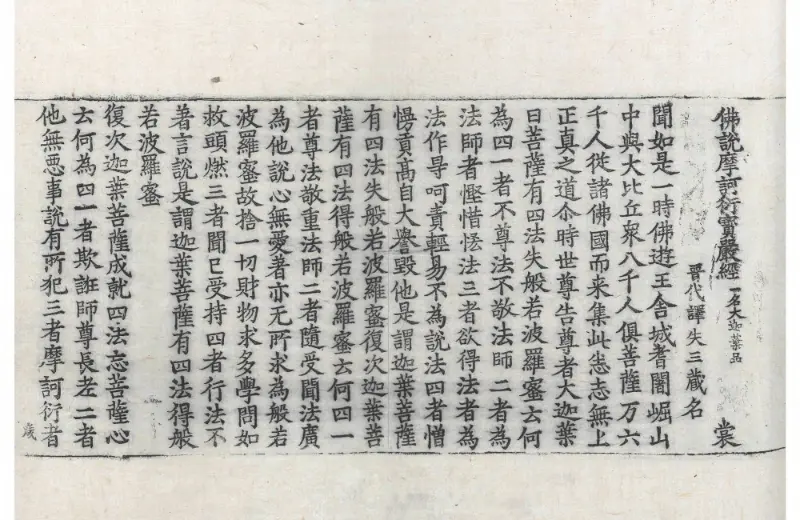 佛說摩訶衍寶嚴經 一名大迦葉品 裳
晋代譯失三藏名
聞如是一時佛遊王舍城耆闍崛山
中與大比丘衆八千人俱菩薩万六
千人從諸佛國而来集此悉志無上
正真之道尒時世尊告尊者大迦葉
曰菩薩有四法失般若波羅蜜云何
為四一者不尊法不敬法師二者為
法師者慳惜悋法三者欲得法者為
法作㝵呵責輕易不為說法四者憎
慢貢高自大譽毀他是謂迦葉菩薩
有四法失般若波羅蜜復次迦葉菩
薩有四法得般若波羅蜜云何四一
者尊法敬重法師二者隨受聞法廣
為他說心無愛著亦无所求為般若
波羅蜜故捨一切財物求多學問如
救頭燃三者聞已受持四者行法不
著言說是謂迦葉菩薩有四法得般
若波羅蜜
復次迦葉菩薩成就四法忘菩薩心
云何為四一者欺誑師尊長老二者
他無悪事說有所犯三者摩訶衍者